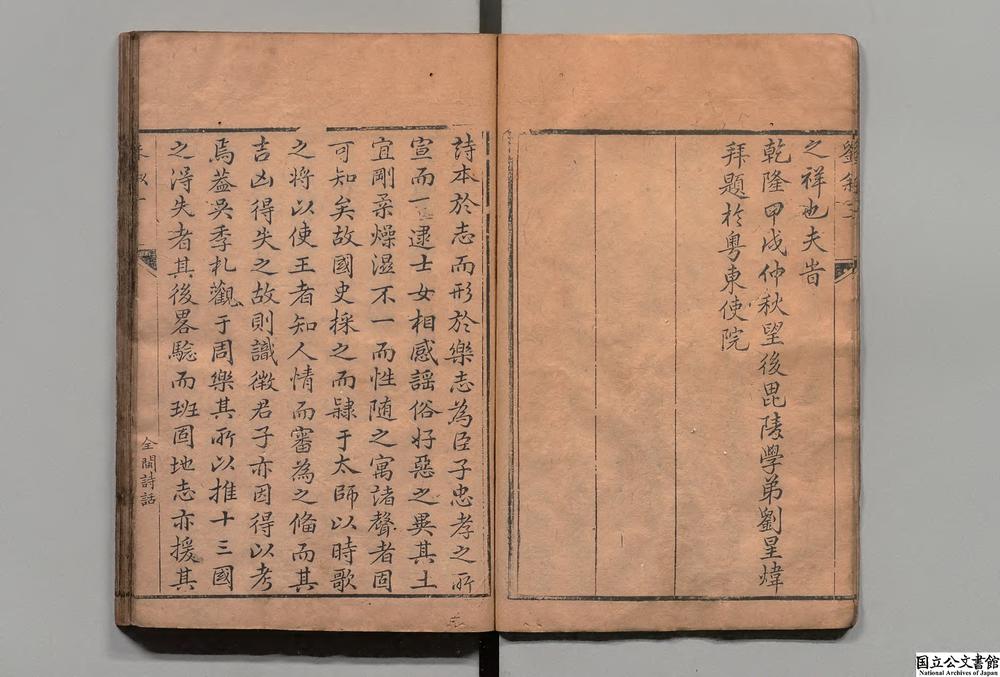 之祥也夫旹
乾隆甲戌仲秋望後毘陵學弟劉星煒
拜題於粵東使院
詩本於志而形於樂志為臣子忠孝之所
宣而一逮士女相感謠俗好惡之異其土
宜剛柔燥濕不一而性隨之寓諸聲者固
可知矣故國史採之而隷于太師以時歌
之將以使王者知人情而審為之俻而其
吉凶得失之故則識微君子亦因得以考
焉葢吳季札觀于周樂其所以推十三國
之淂失者其後畧騐而班固地志亦援其
全閩詩話
国立公文書館
National Archives of Japan